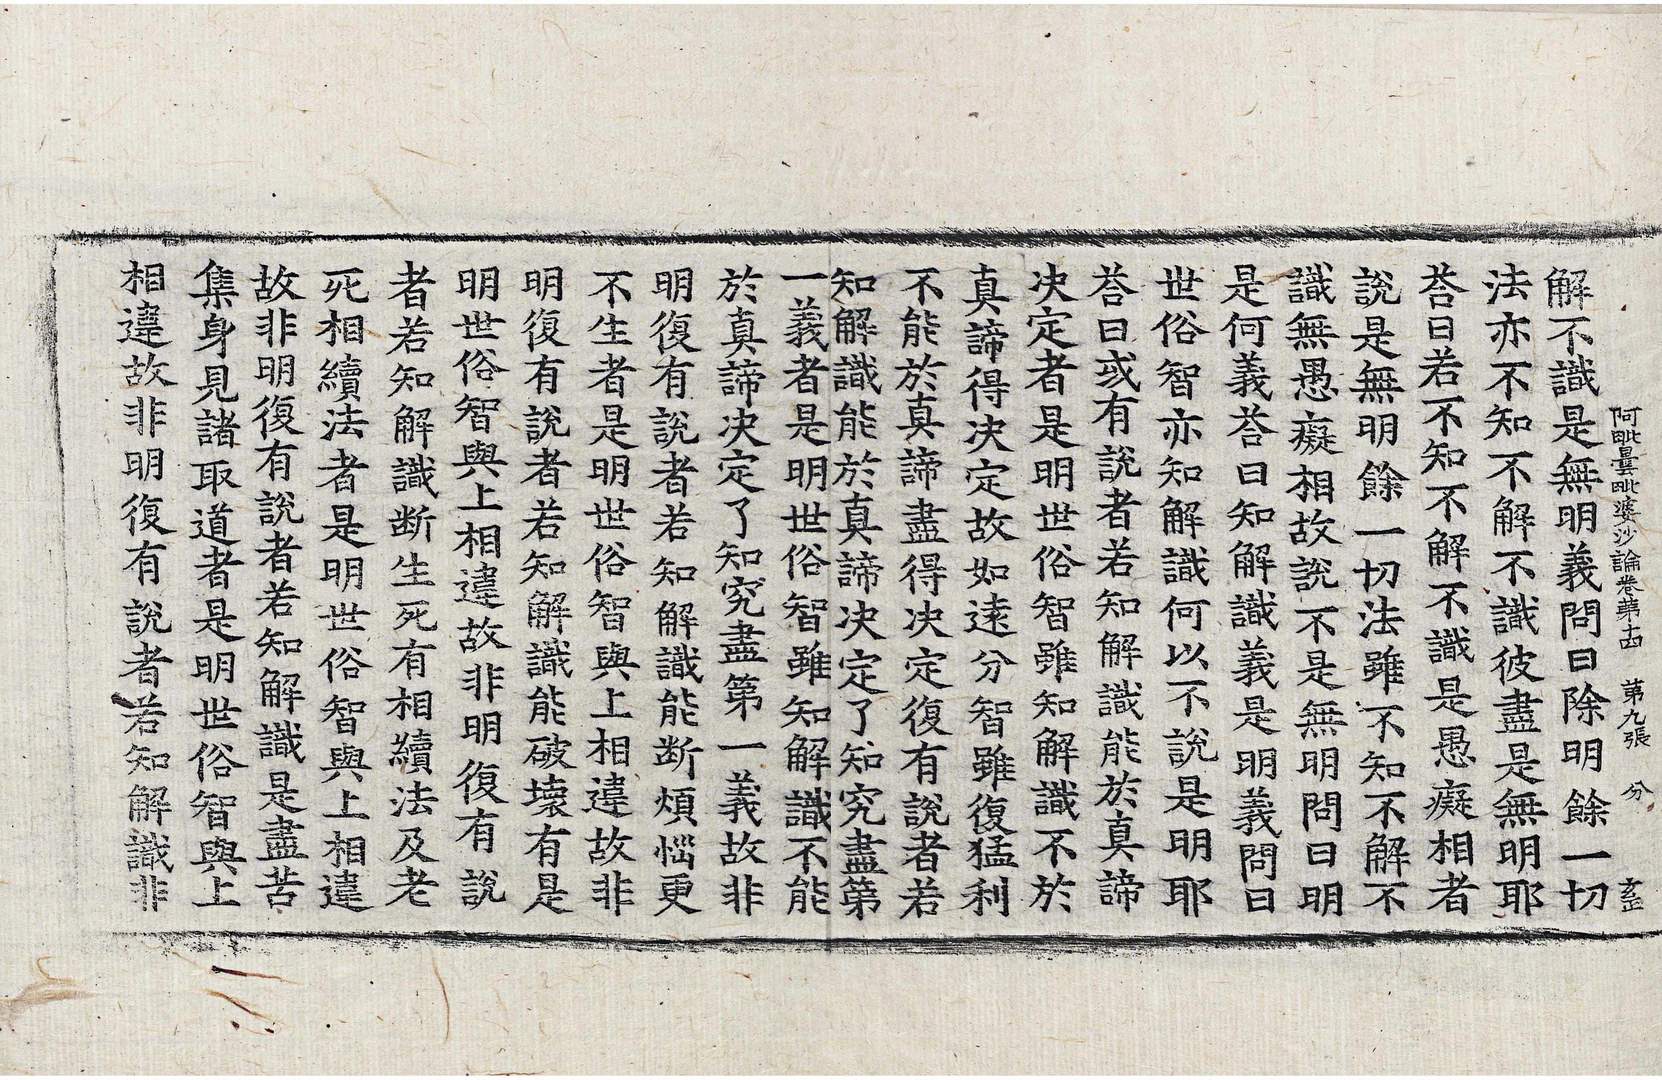 阿毗曇毗婆沙論卷第十四 第九張 分
解不識是無明義問曰除明餘一切
法亦不知不解不識彼盡是無明耶
荅曰若不知不解不識是愚癡相者
說是無明餘一切法雖不知不解不
識無愚癡相故說不是無明問曰明
是何義荅曰知解識義是明義問曰
世俗智亦知解識何以不說是明耶
荅曰或有說者若知解識能於真諦
决定者是明世俗智雖知解識不於
真諦得决定故如逺分智雖復猛利
不能於真諦盡得决定復有說者若
知解識能於真諦决定了知究盡第
一義者是明世俗智雖知解識不能
於真諦决定了知究盡第一義故非
明復有說者若知解識能断煩惱更
不生者是明世俗智與上相違故非
明復有說者若知解識能破壞有是
明世俗智與上相違故非明復有說
者若知解識断生死有相續法及老
死相續法者是明世俗智與上相違
故非明復有說者若知解識是盡苦
集身見諸取道者是明世俗智與上
相違故非明復有說者若知解識非